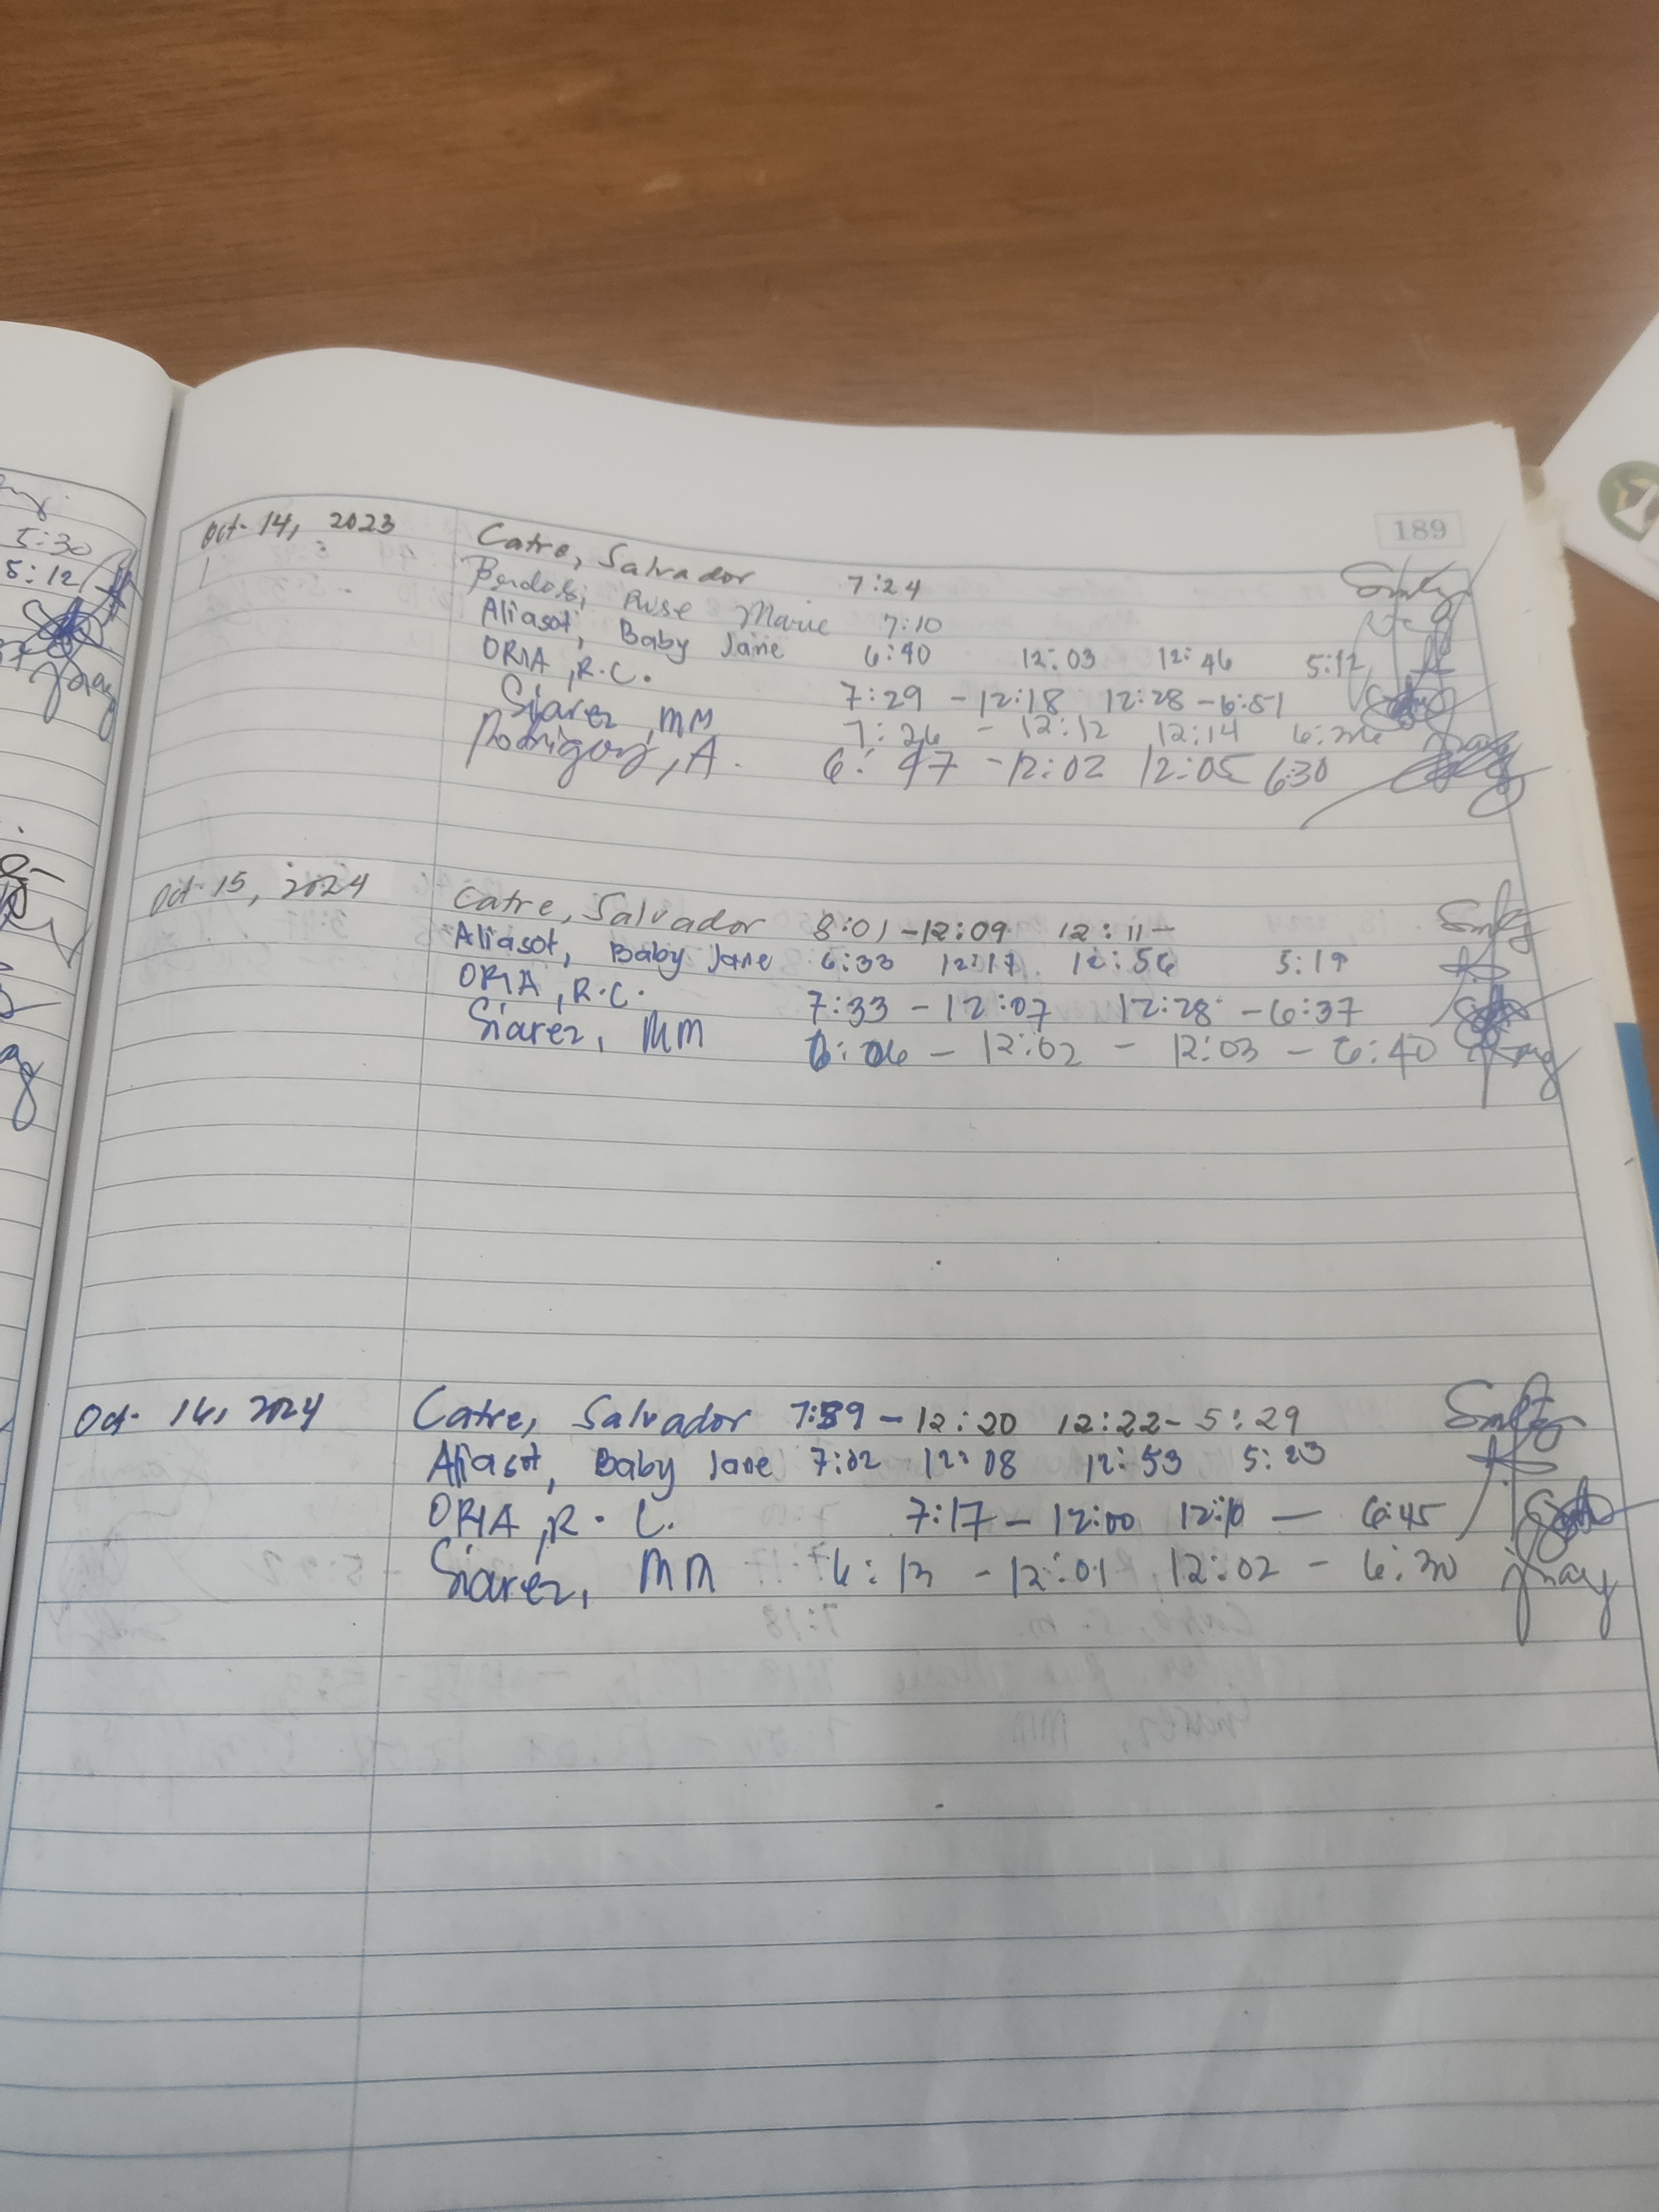 5:30
5:12
189
Oct. 14, 2023 Catre, Salvador 7:24
Rose Marie 7:10
Aliasot, Baby Jane 6:40 12:03 12:46 5:12
ORIA, R.C. 7:29 - 12:18 12:28 - 6:51
Siarez, MM 7:26 - 12:12 12:14
A. 6:47 - 12:02 12:05 6:30
Oct. 15, 2024 Catre, Salvador 8:01 - 12:09 12:11 -
Aliasot, Baby Jane 6:33 12:17 12:56 5:19
ORIA, R.C. 7:33 - 12:07 12:28 - 6:37
Siarez, MM 6:06 - 12:02 - 12:03 - 6:40
Oct. 16, 2024 Catre, Salvador 7:39 - 12:20 12:22 - 5:29
Aliasot, Baby Jane 7:02 12:08 12:53 5:23
ORIA, R. C. 7:17 - 12:00 12:10 — 6:45
Siarez, MM 6:13 - 12:01 12:02 - 6:30